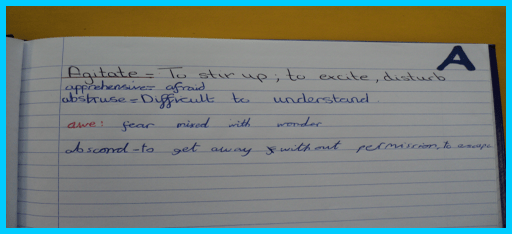 A
Agitate = To stir up, to excite, disturb
apprehensive = afraid
abstruse = Difficult to understand.
awe: fear mixed with wonder
abscond - to get away without permission, to escape